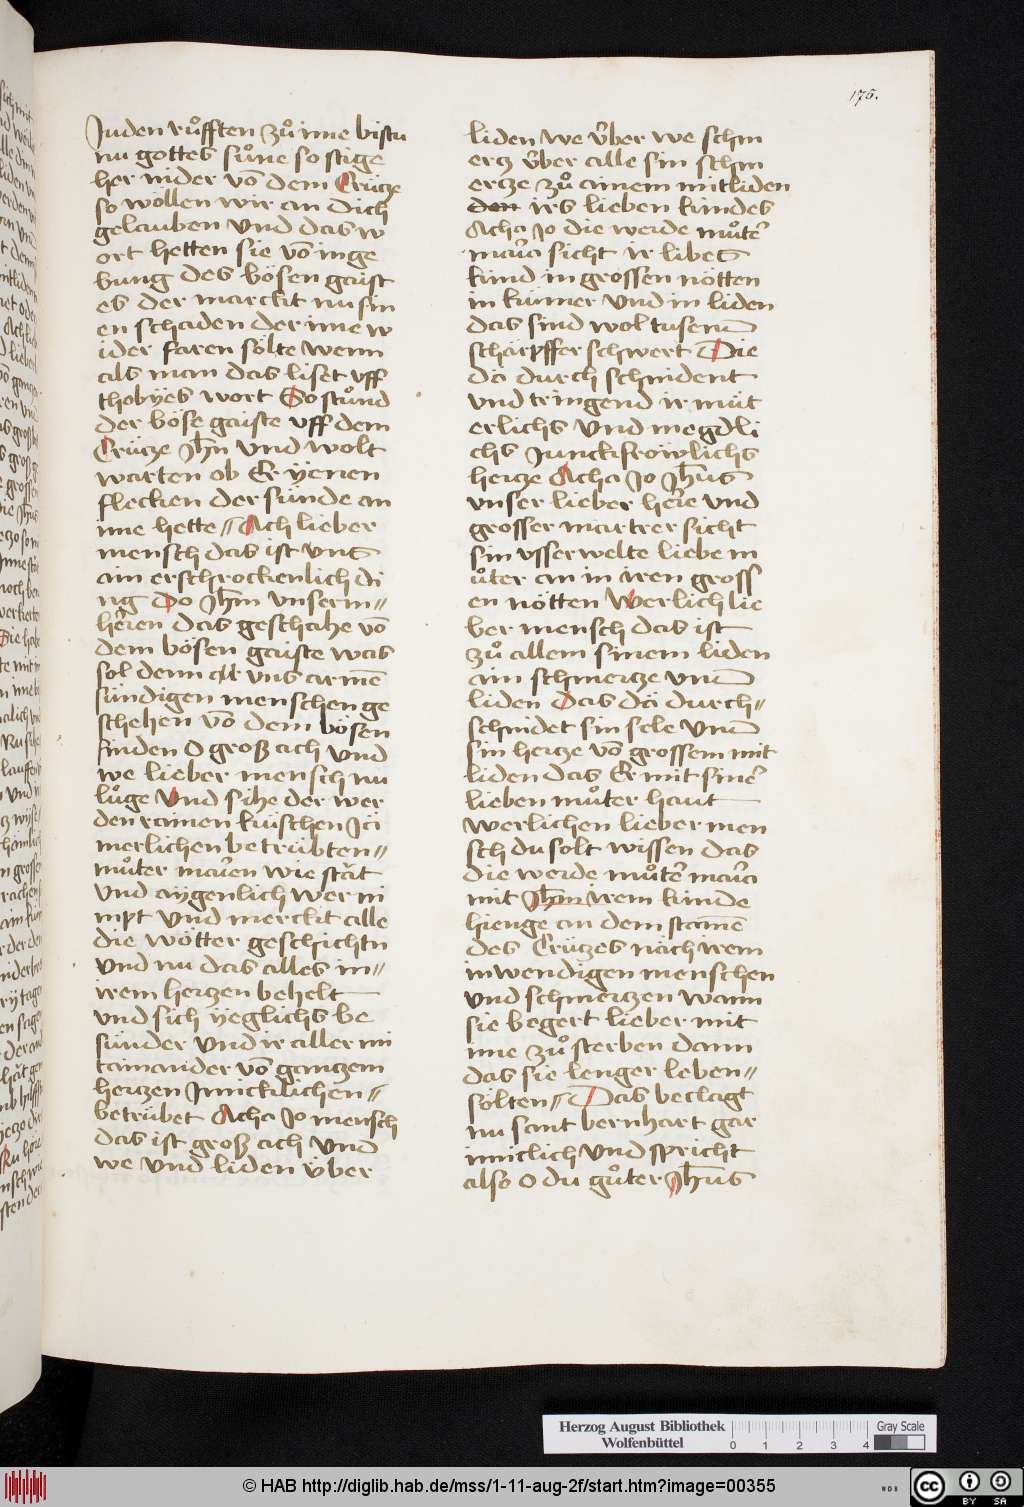 175.
Juden růfften zů ime bistu
nu gottes sůne so stige
her nider vō dem Crütze
so wöllen wir an dich
gelauben vnd das w
ort hetten sie vō inge
bung des bösen gaist
es der marckt nu sin
en schaden der ime w
ider faren sölte wenn
als man das liset vff
thobyes wort So stůnd
der böse gaiste vff dem
Crütze Jhn vnd wolt
warten ob Er yenen
flecken der sünde an
ime hette // Ach lieber
mensch das ist vns
ain erschrockenlich di
ng do Jhm vnserm //
herren das geschahe vō
dem bösen gaiste was
sol denn all vns armē
sündigen menschen ge
schehen vō dem bösen
finden O groß ach vnd
we lieber mensch nu
lůge Vnd sihe der wer
den rainen küschen Jä
merlichen betrübten //
můter marien wie stät
vnd aygenlich wer ni
mpt vnd merckt alle
die wötter geschichtn
vnd nu das alles in //
irem hertzen behelt
vnd sich yeglichs be
sünder vnd ir aller mi
tainander vō gantzem
hertzen Jnnicklichen //
betrübet Acha Jo mensch
das ist groß ach vnd
we vnd liden über
liden we über we schm
ertz über alle sin schm
ertze zů ainem mitliden
den irs lieben kindes
Acha Jo die werde můter
maria sicht ir libes
kind in grossen nötten
in kumer vnd in liden
das sind wol tusent
schärpffer schwert Die
dä durch schnident
vnd tringend ir müt
erlichs vnd megdli
chs Junckfröwlichs
hertze Acha Jo Jhus
vnser lieber here vnd
grosser martrer sicht
sin vsserwelte liebe m
ůter an in iren gross
en nötten Werlich lie
ber mensch das ist
zů allem sinem liden
ain schmertze vnd
liden Das dä durch //
schnidet sin sele vnd
sin hertze vō grossem mit
liden das Er mit siner
lieben můter haut
werlichen lieber men
sch du solt wissen das
die werde můter maria
mit Jhm irem kinde
hienge an dem stamē
des Crützes näch irem
inwendigen menschen
vnd schmertzen wann
sie begert lieber mit
ime zů sterben dann
das sie lenger leben //
sölten // Das beclagt
nu sant bernhart gar
innclich vnd spricht
also O du gůter Jhus
Herzog August Bibliothek
Wolfenbüttel
0 1 2 3 4
Gray Scale
© HAB http://diglib.hab.de/mss/1-11-aug-2f/start.htm?image=00355
WDB
cc BY SA